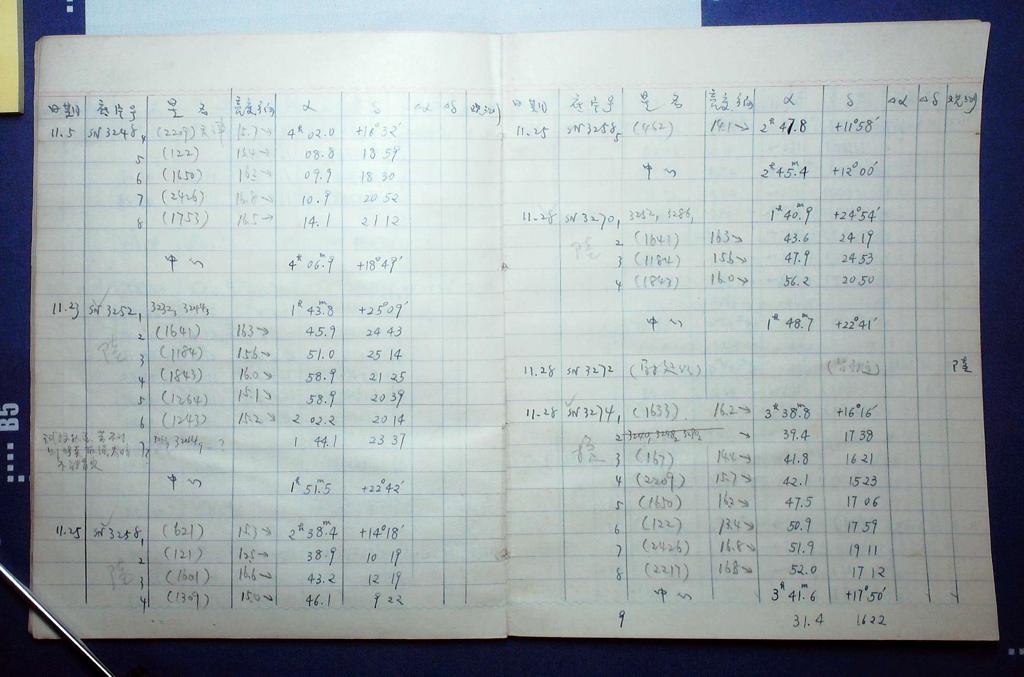 日期 底片号 星名 亮度 α δ Δα Δδ 观测
11.5 SN3248 4 (2209) 15.7→ 4ʰ 02.0 +16°32′
5 (122) 13.4→ 08.8 18 59
6 (1650) 16.3→ 09.9 18 30
7 (2426) 16.8→ 10.9 20 52
8 (1753) 16.5→ 14.1 21 12
中心 4ʰ 06.9 +18°49′
11.23 SN3252 1 3232, 3244 1ʰ 43.8ᵐ +25°09′
2 (1641) 16.3→ 45.9 24 43
陸 3 (1184) 15.6→ 51.0 25 14
4 (1843) 16.0→ 58.9 21 25
5 (1264) 15.1→ 58.9 20 39
6 (1243) 15.2→ 2 02.2 20 14
7 3244 ? 1 44.1 23 37
中心 1ʰ 51.5ᵐ +22°42′
11.25 SN3258 1 (621) 15.3→ 2ʰ 38.4ᵐ +14°18′
2 (121) 12.5→ 38.9 10 19
陸 3 (1601) 16.6→ 43.2 12 19
4 (1309) 15.0→ 46.1 9 22
日期 底片号 星名 亮度 α δ Δα Δδ 观测
11.25 SN3258 5 (462) 14.1→ 2ʰ 47.8 +11°58′
中心 2ʰ 45.4ᵐ +12°00′
11.28 SN3270 1 3252, 3286 1ʰ 40.9ᵐ +24°54′
陸 2 (1641) 16.3→ 43.6 24 19
3 (1184) 15.6→ 47.9 24 53
4 (1843) 16.0→ 56.2 20 50
中心 1ʰ 48.7ᵐ +22°41′
11.28 SN3272 陸
11.28 SN3274 1 (1633) 16.2→ 3ʰ 38.8ᵐ +16°16′
2 → 39.4 17 38
陸 3 (167) 14.4→ 41.8 16 21
4 (2209) 15.7→ 42.1 15 23
5 (1650) 16.3→ 47.5 17 06
6 (122) 13.4→ 50.9 17 59
7 (2426) 16.8→ 51.9 19 11
8 (2217) 16.8→ 52.0 17 12
中心 3ʰ 41.6ᵐ +17°50′
9 31.4 16 22
B5